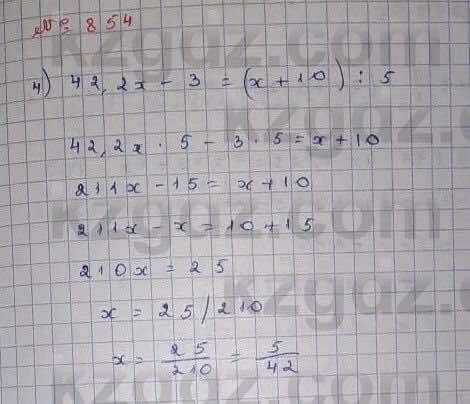 № 854
4) 42,2x - 3 = (x + 10) : 5
42,2x · 5 - 3 · 5 = x + 10
211x - 15 = x + 10
211x - x = 10 + 15
210x = 25
x = 25/210
x = 25/210 = 5/42
kzgdz.com